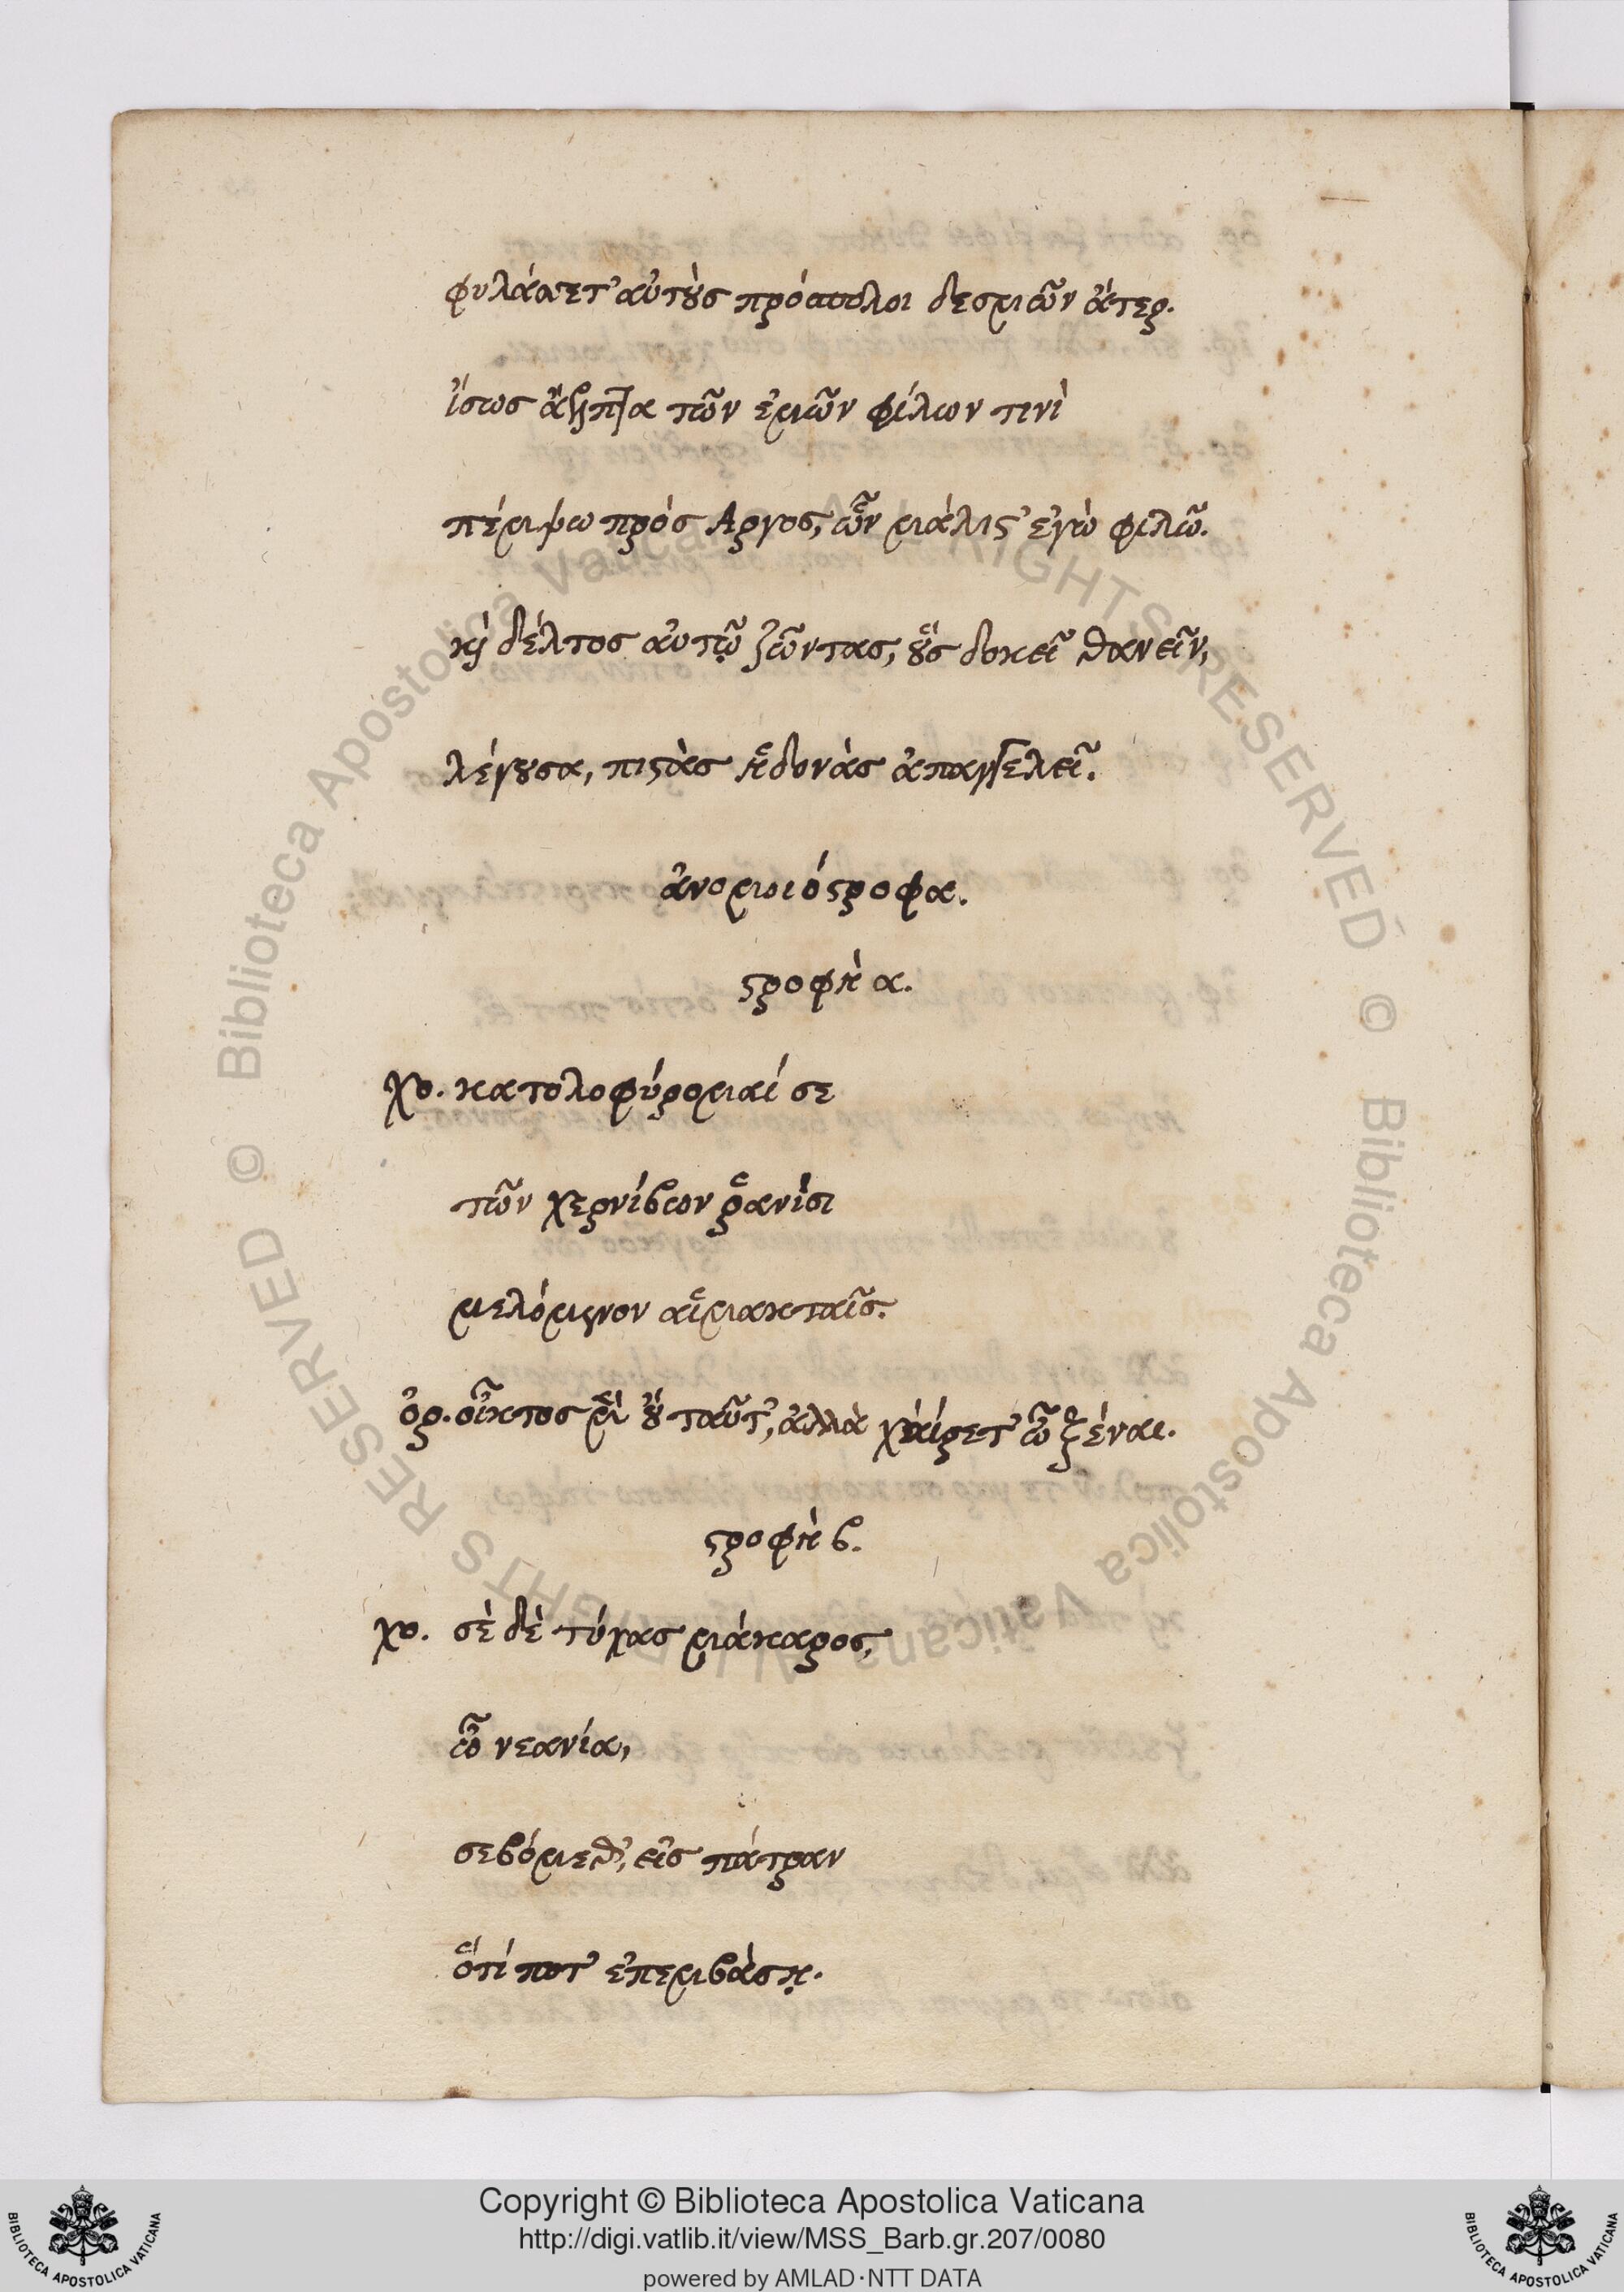 φυλάσσετ' αὐτοὺς πρόσπολοι δεσμῶν ἄτερ.
ἴσως ἄελπτα τῶν ἐμῶν φίλων τινὶ
πέμψω πρός Αργος, ὧν μάλιστ' ἐγὼ φιλῶ.
καὶ δέλτος αὐτῷ ζῶντας, οὓς δοκεῖ θανεῖν,
λέγουσα, πιστὰς ἡδονὰς ἀπαγγελεῖ.
ἀνομοιόστροφα.
στροφὴ α.
χο. κατολοφύρομαί σε
τῶν χερνίβων ῥανίσι
μελόμενον αἱμακταῖς.
ὀρ. οἶκτος οὐ ταῦτ', ἀλλὰ χαίρετ' ὦ ξέναι.
στροφὴ β.
χο. σὲ δὲ τύχας μάκαρος,
ὦ νεανία,
σεβόμεθ', εἰς πάτραν
ὅτί ποτ' ἐπεμβάσῃ.
Copyright © Biblioteca Apostolica Vaticana
http://digi.vatlib.it/view/MSS_Barb.gr.207/0080
powered by AMLAD·NTT DATA
BIBLIOTECA APOSTOLICA VATICANA
BIBLIOTECA APOSTOLICA VATICANA
© Biblioteca Apostolica Vaticana ALL RIGHTS RESERVED
© Biblioteca Apostolica Vaticana ALL RIGHTS RESERVED